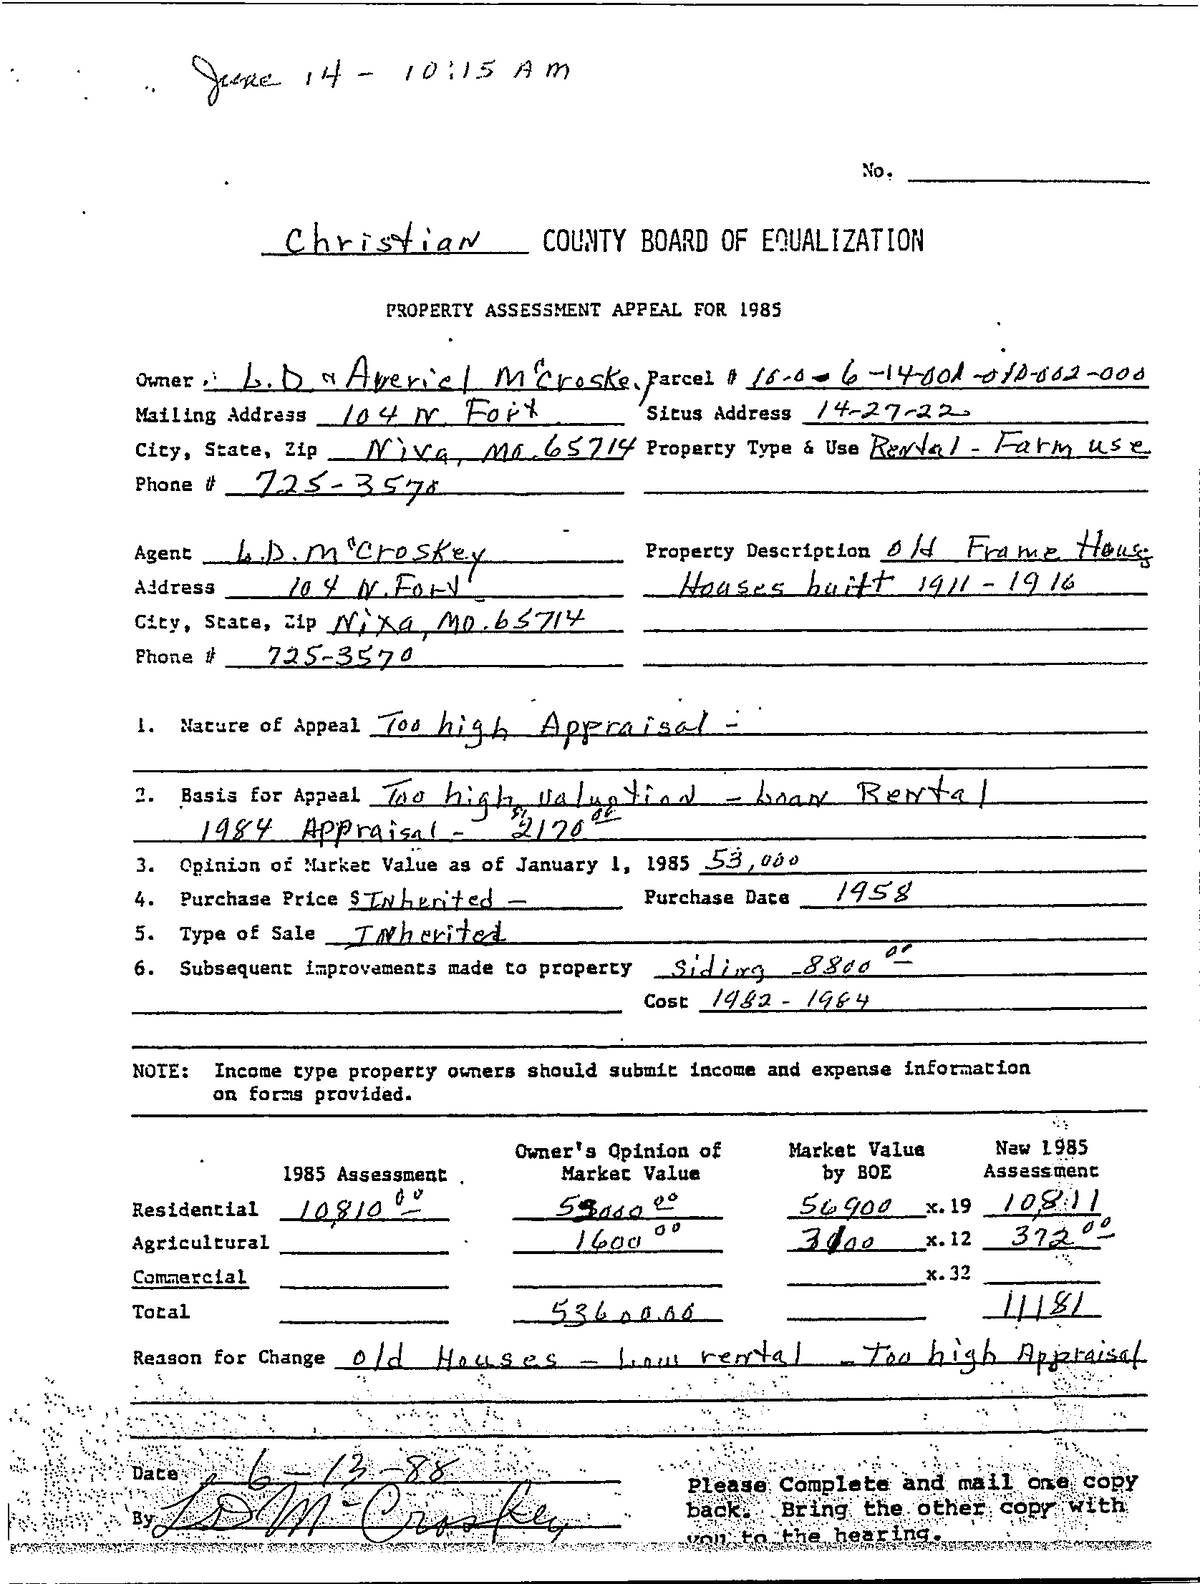 June 14 - 10:15 AM
No.
Christian COUNTY BOARD OF EQUALIZATION
PROPERTY ASSESSMENT APPEAL FOR 1985
Owner L.D & Averiel McCroskey Parcel # 10-0-6-14-001-010-002-000
Mailing Address 104 N. Fort Situs Address 14-27-22
City, State, Zip Nixa, Mo. 65714 Property Type & Use Rental - Farm use
Phone # 725-3570
Agent L.D. McCroskey Property Description Old Frame House
Address 104 N. Fort Houses built 1911-1916
City, State, Zip Nixa, Mo. 65714
Phone # 725-3570
1. Nature of Appeal Too high Appraisal -
2. Basis for Appeal Too high valuation - Loan Rental
1984 Appraisal - 2170 00
3. Opinion of Market Value as of January 1, 1985 53,000
4. Purchase Price $ Inherited - Purchase Date 1958
5. Type of Sale Inherited
6. Subsequent improvements made to property Siding - 8800 00
Cost 1982 - 1984
NOTE: Income type property owners should submit income and expense information
on forms provided.
Owner's Opinion of Market Value New 1985
1985 Assessment Market Value by BOE Assessment
Residential 10,810 00 53000 00 56900 x.19 10,811
Agricultural 1600 00 3100 x.12 372 00
Commercial x.32
Total 53600.00 11181
Reason for Change Old Houses - Low rental - Too high Appraisal
Date 6-13-88
By LD McCroskey
Please Complete and mail one copy
back. Bring the other copy with
you to the hearing.